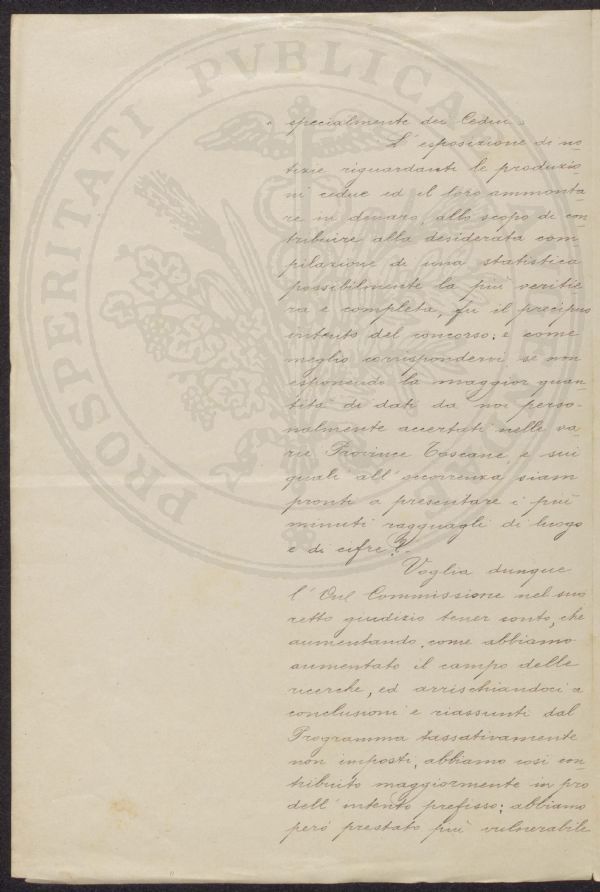 PROSPERITATI PVBLICAE
„ specialmente dei Cedui „
L' esposizione di no
tizie riguardanti le produzio
ni cedue ed il loro ammonta
re in denaro, allo scopo di con
tribuire alla desiderata com
pilazione di una statistica
possibilmente la più veritie
ra e completa, fu il precipuo
intento del concorso; e come
meglio corrispondervi se non
esponendo la maggior quan
tità di dati da noi perso-
nalmente accertati nelle va
rie Provincie Toscane e sui
quali all' occorrenza siam
pronti a presentare i più
minuti ragguagli di luogo
e di cifre? –
Voglia dunque
l' On.l Commissione nel suo
retto giudizio tener conto, che
aumentando, come abbiamo
aumentato il campo delle
ricerche, ed arrischiandoci a
conclusioni e riassunti dal
Programma tassativamente
non imposti, abbiamo così con
tribuito maggiormente in pro
dell' intento prefisso; abbiamo
però prestato più vulnerabile